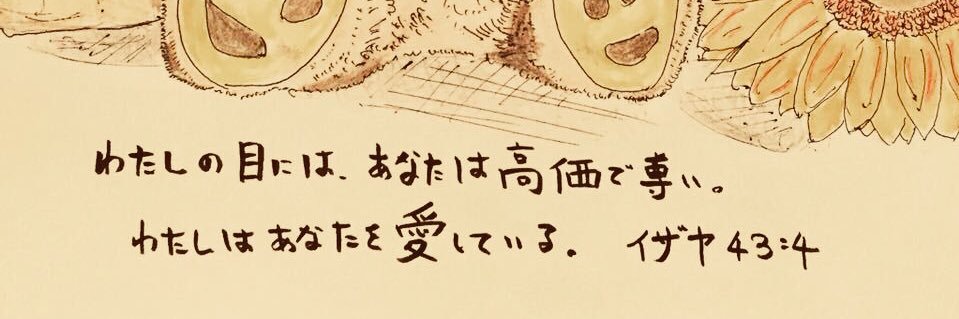 わたしの目には、あなたは高価で尊い。
わたしはあなたを愛している。 イザヤ43:4